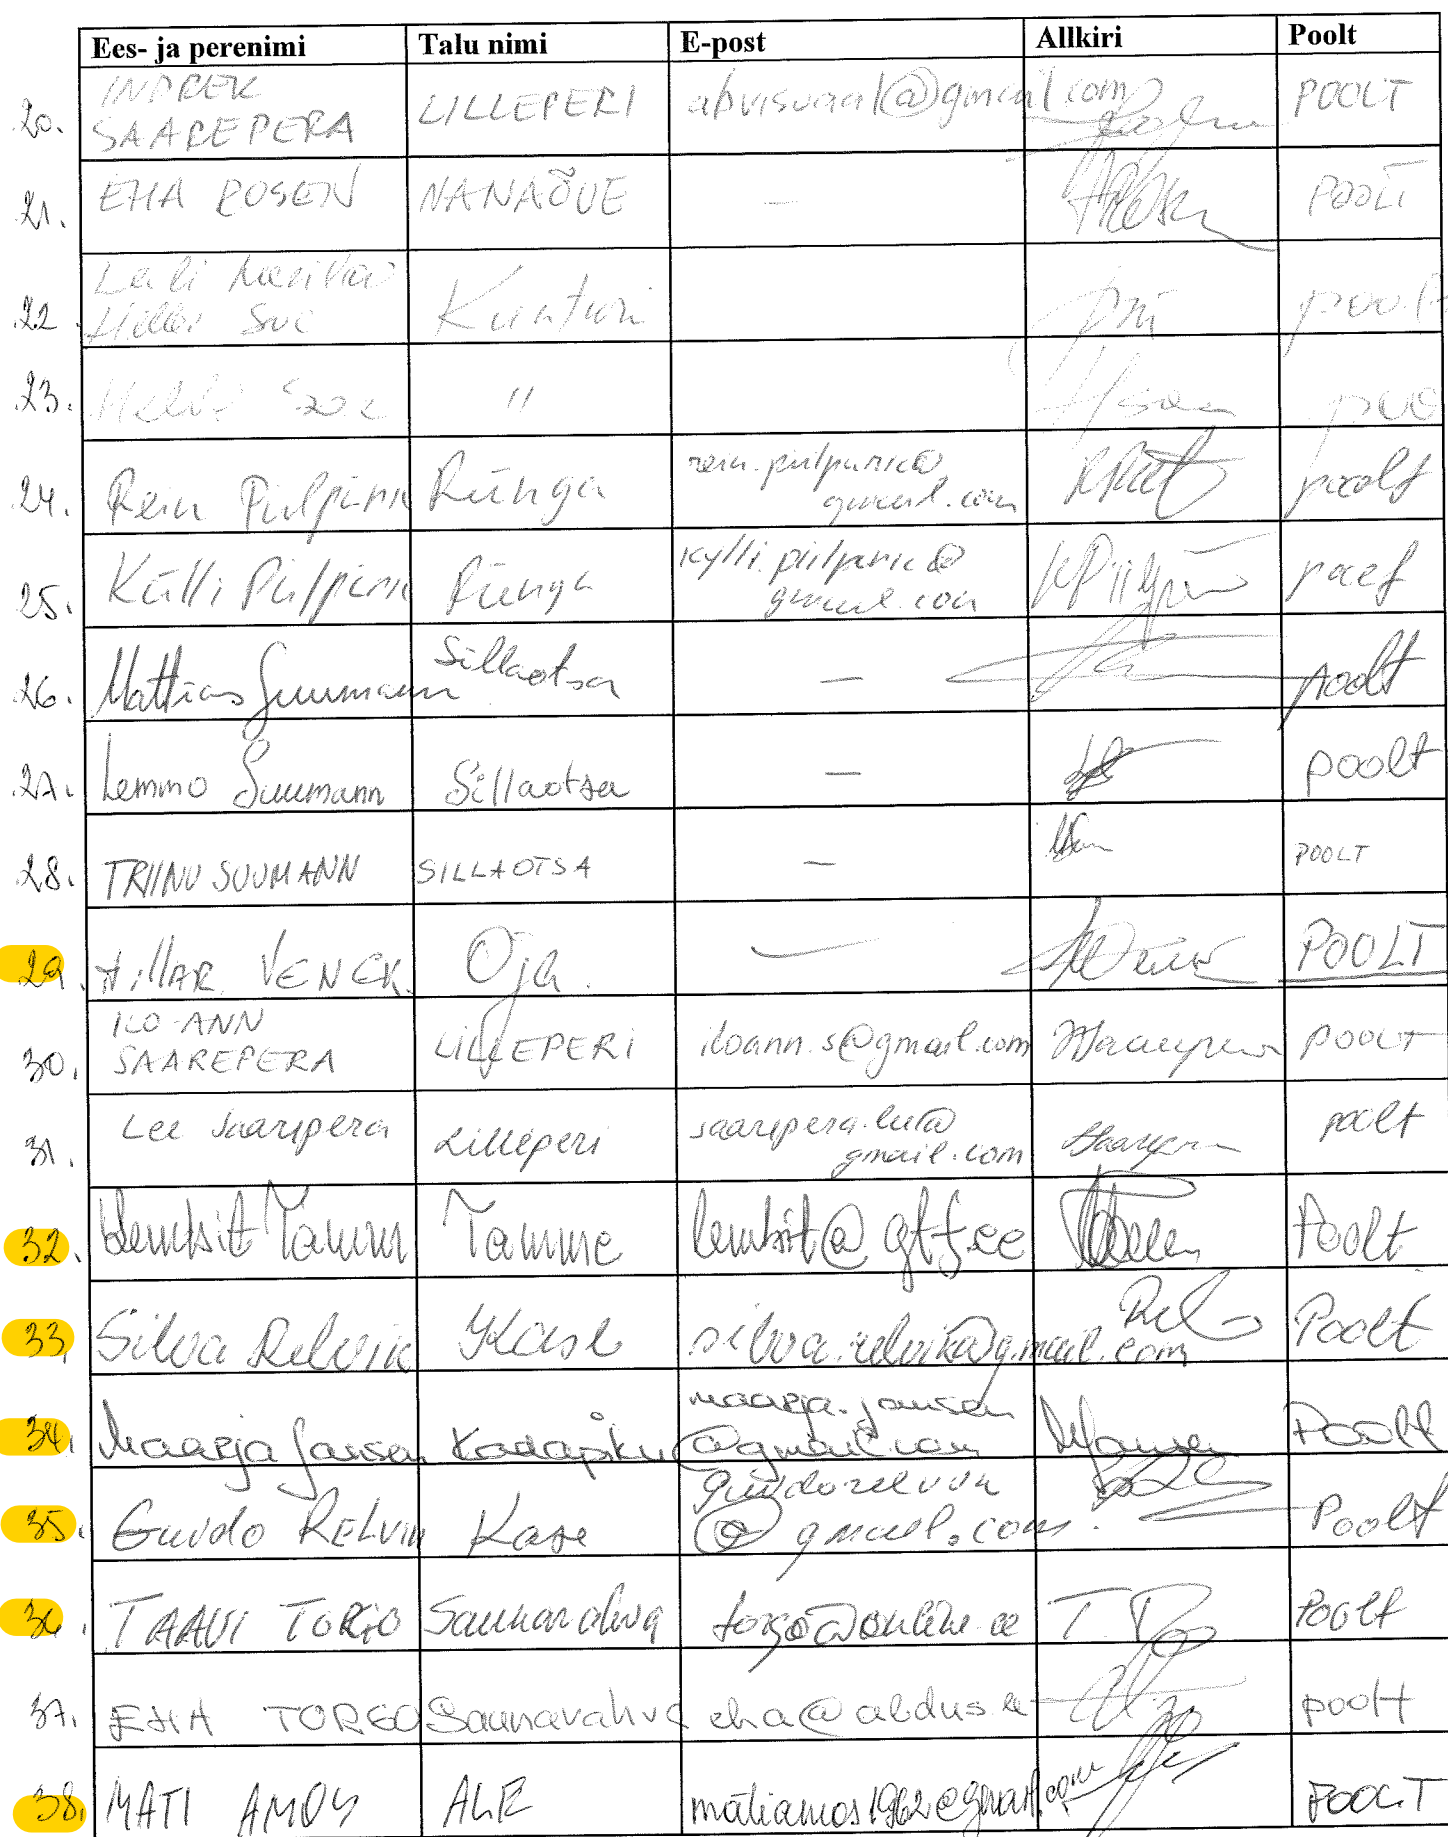 Ees- ja perenimi Talu nimi E-post Allkiri Poolt
20. INDREK SAAREPERA LILLEPERI abvisuaal@gmail.com POOLT
21. EHA ROSEN NANAÕUE — POOLT
22. Kuntturi poolt
23. "
24. Rein Piilpärk Rünga gmail.com poolt
25. Külli Rünga gmail.com
26. Mattias Suumann Sillaotsa — poolt
27. Lemmo Suumann Sillaotsa — poolt
28. TRIINU SUUMANN SILLAOTSA — POOLT
29. HILLAR VENEK Oja — POOLT
30. ILO-ANN SAAREPERA LILLEPERI iloann.s@gmail.com POOLT
31. Lee Saarepera Lilleperi saarepera.lee@gmail.com poolt
32. Lembit Tamm Tamme lembit@gtf.ee Poolt
33. Silva Relvik Kase silva.relvik@gmail.com Poolt
34. Maarja Jansen Kadapiku maarja.jansen@gmail.com Poolt
35. Guido RELVIK Kase @gmail.com Poolt
36. TAAVI TORGO Saunarahva torgo@online.ee Poolt
37. EHA TORGO Saunavahva eha@aldus.ee poolt
38. MATI AMOS ALE matiamos1962@gmail.com POOLT